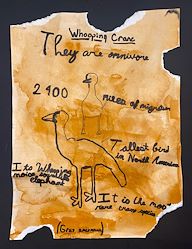 Whooping Crane
They are omnivore
2400
miles of migration
Tallest bird
in North America
It's Whooping
noise sounds like
elephant
It is the most
rare crane species
(Grus americana)